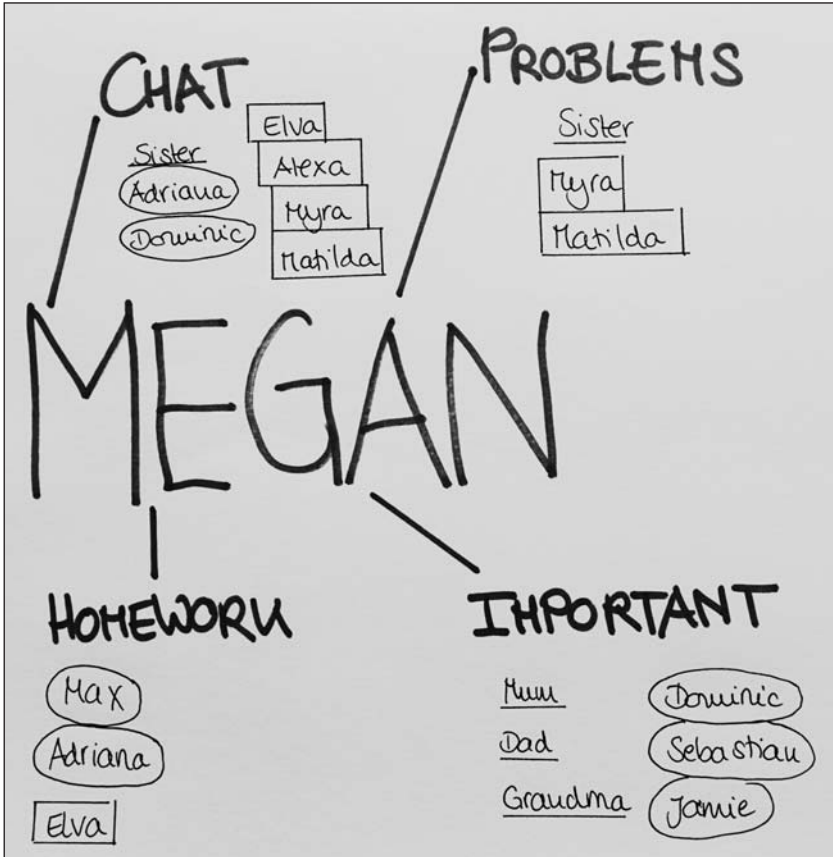 CHAT
Sister
Adriana
Dominic
Elva
Alexa
Myra
Matilda
PROBLEMS
Sister
Myra
Matilda
MEGAN
HOMEWORK
Max
Adriana
Elva
IMPORTANT
Mum
Dad
Grandma
Dominic
Sebastian
Jamie